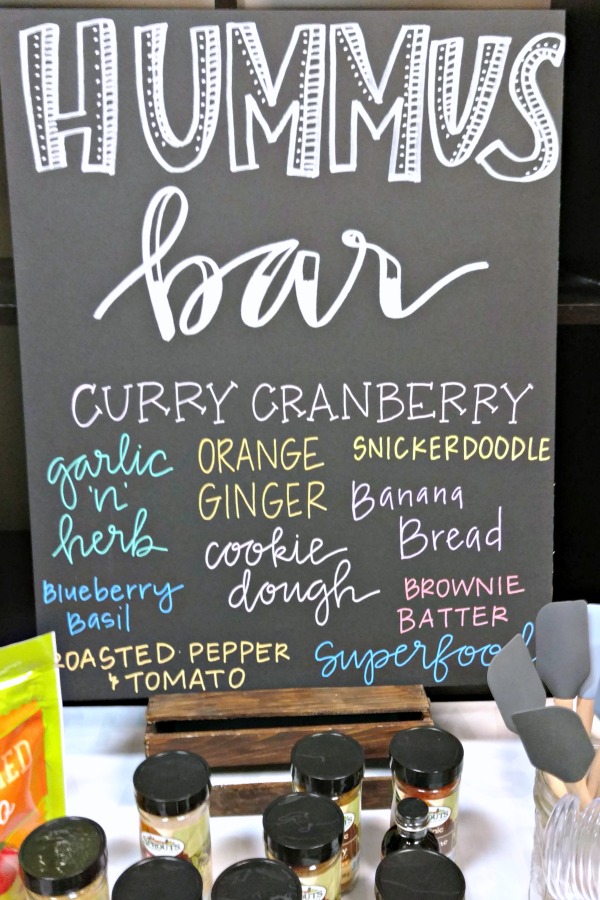 HUMMUS
bar
CURRY CRANBERRY
garlic
'n'
herb
ORANGE
GINGER
SNICKERDOODLE
Banana
Bread
cookie
dough
Blueberry
Basil
BROWNIE
BATTER
ROASTED PEPPER
& TOMATO
Superfood
SPROUTS